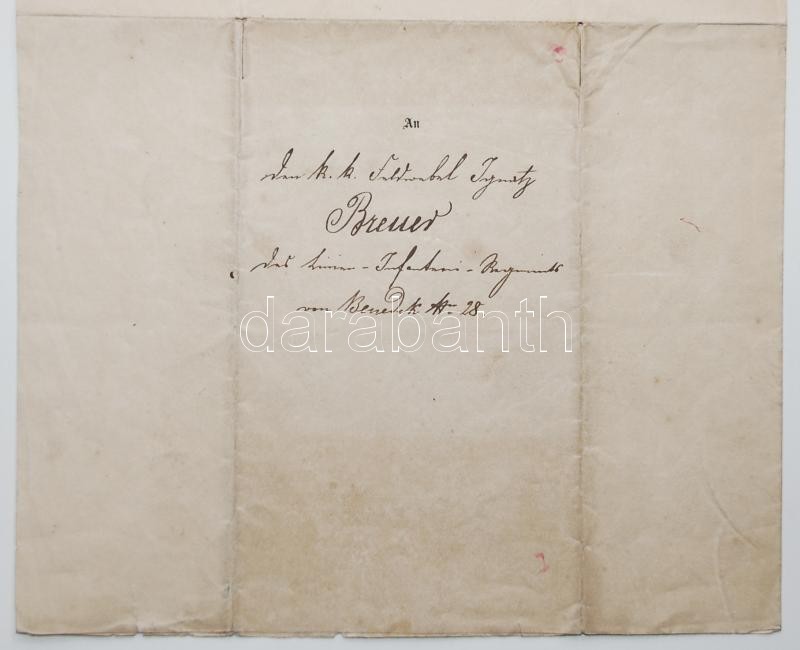 An
den k. k. Feldwebel Ignatz
Breuer
des Linien-Infanterie-Regiments
von Benedek Nr. 28
darabanth